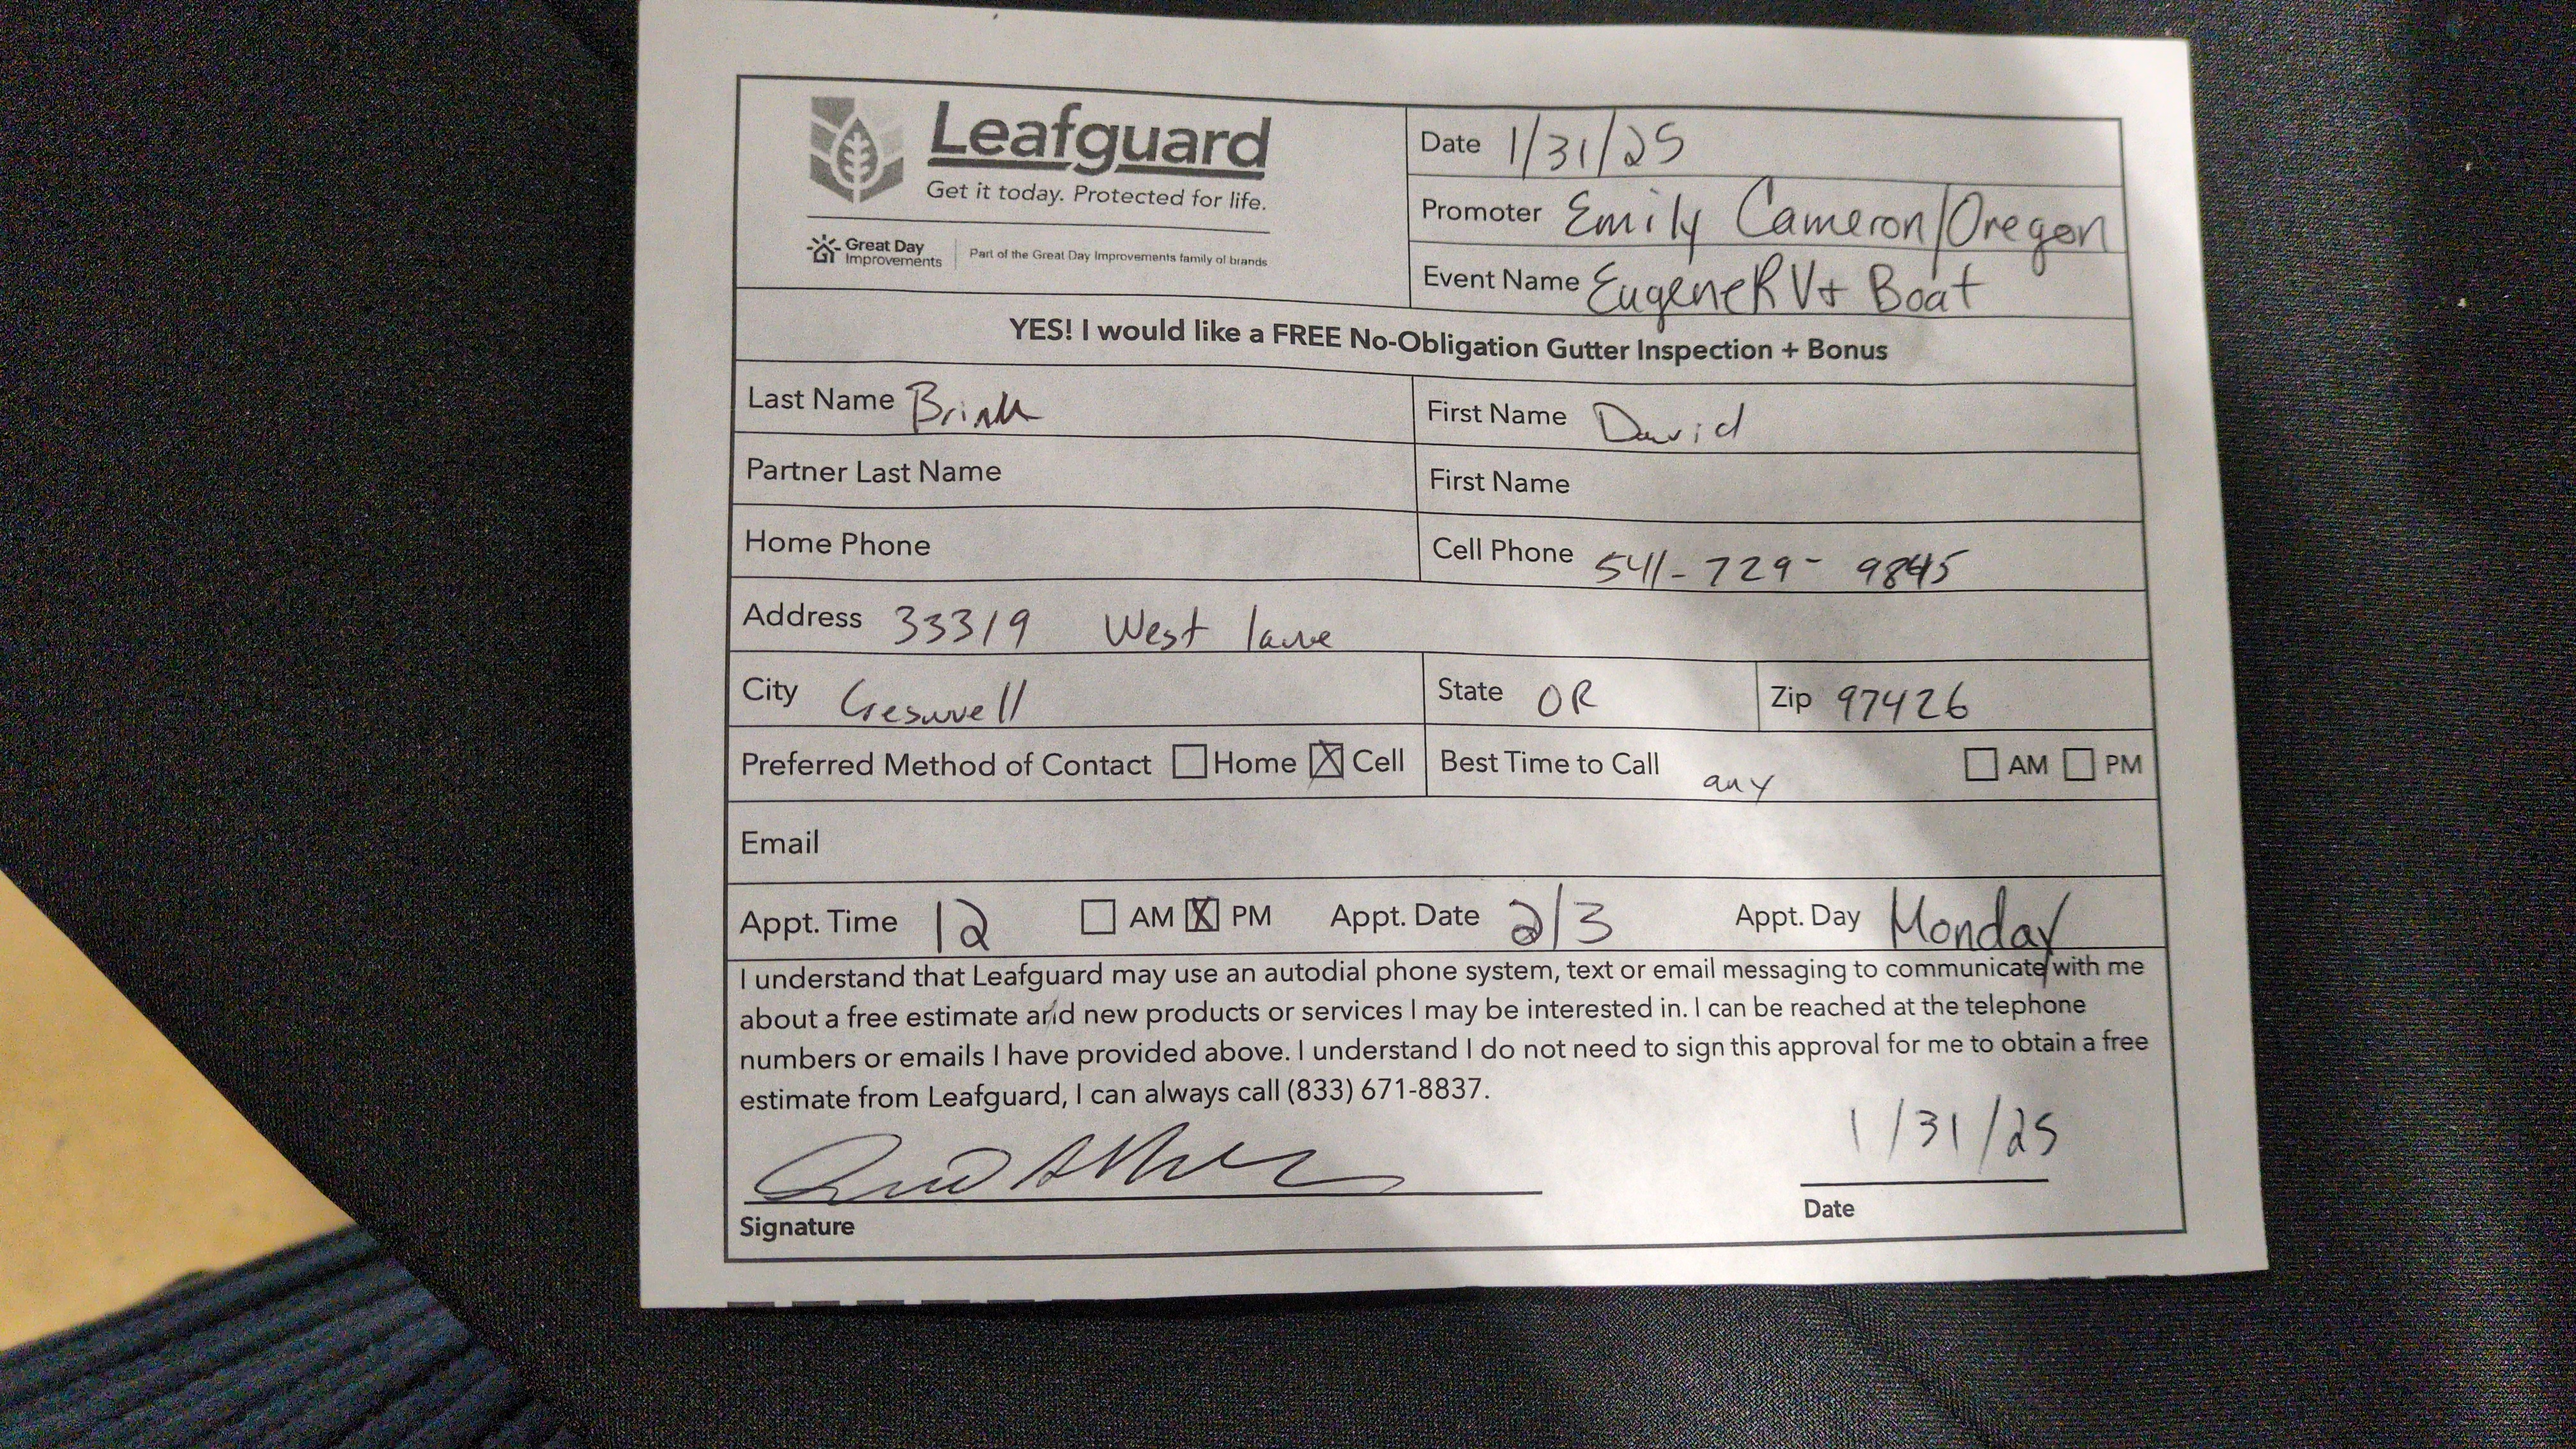 Leafguard
Get it today. Protected for life.
Great Day Improvements
Part of the Great Day Improvements family of brands
Date 1/31/25
Promoter Emily Cameron/Oregon
Event Name Eugene RV + Boat
YES! I would like a FREE No-Obligation Gutter Inspection + Bonus
Last Name Brink First Name David
Partner Last Name First Name
Home Phone Cell Phone 541-729-9845
Address 33319 West lane
City Creswell State OR Zip 97426
Preferred Method of Contact Home Cell Best Time to Call any AM PM
Email
Appt. Time 12 AM PM Appt. Date 2/3 Appt. Day Monday
I understand that Leafguard may use an autodial phone system, text or email messaging to communicate with me
about a free estimate and new products or services I may be interested in. I can be reached at the telephone
numbers or emails I have provided above. I understand I do not need to sign this approval for me to obtain a free
estimate from Leafguard, I can always call (833) 671-8837.
1/31/25
Signature Date